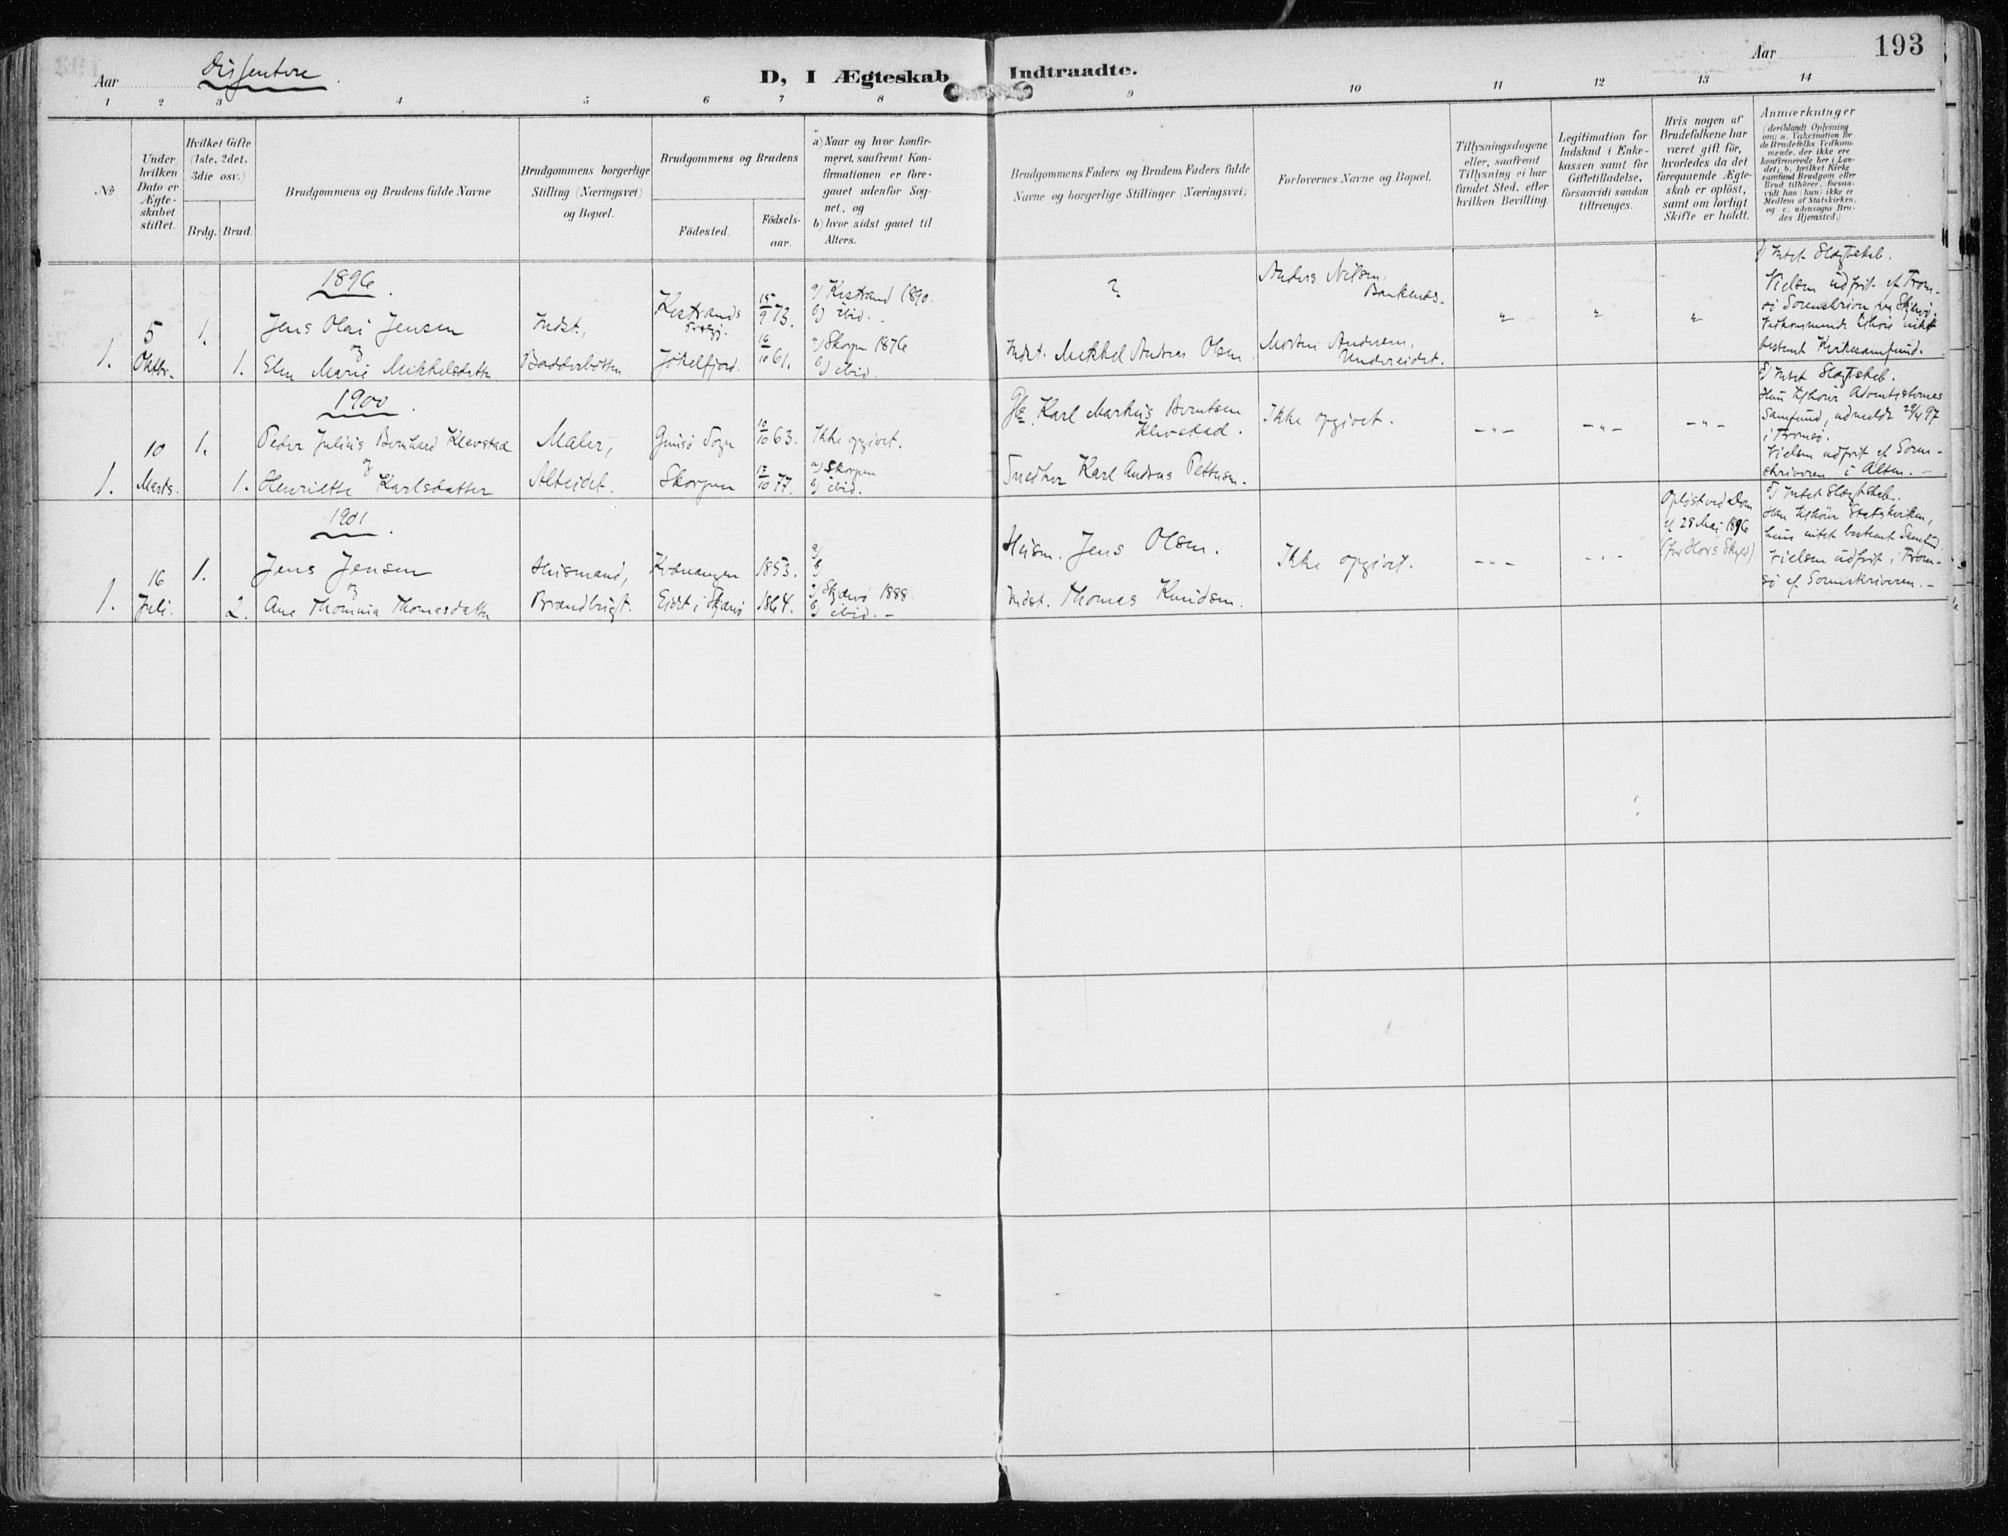 193
Aar Dissentere.
D, I Ægteskab Indtraadte.
Aar
1 2 3 4 5 6 7 8 9 10 11 12 13 14
No
Under
hvilken
Dato er
Ægte-
skabet
stiftet.
Hvilket Gifte
(1ste, 2det,
3die osv.)
Brdg. Brud.
Brudgommens og Brudens fulde Navne
Brudgommens borgerlige
Stilling (Næringsvei)
og Bopæl.
Brudgommens og Brudens
Fødested.
Fødsels-
aar.
a) Naar og hvor konfir-
meret, saafremt Kon-
firmationen er fore-
gaaet udenfor Sog-
net, og
b) hvor sidst gaaet til
Alters.
Brudgommens Faders og Brudens Faders fulde
Navne og borgerlige Stillinger (Næringsvei)
Forlovernes Navne og Bopæl.
Tillysningsdagene
eller, saafremt
Tillysning ei har
fundet Sted, efter
hvilken Bevilling.
Legitimation for
Indskud i Enke-
kassen samt for
Giftetilladelse,
forsaavidt saadan
tiltrænges.
Hvis nogen af
Brudefolkene har
været gift før,
hvorledes da det
foregaaende Ægte-
skab er opløst,
samt om lovligt
Skifte er holdt.
Anmærkninger
(deriblandt Oplysning
om: a. Vakcination for
de Brudefolks Vedkom-
mende, der ikke ere
konfirmerede her i Lan-
det; b. hvilket Kirke-
samfund Brudgom eller
Brud tilhører, forsaa-
vidt han (hun) ikke er
Medlem af Statskirken,
og c. udensogns Bru-
des Hjemsted.)
1896.
1. 5 Oktbr. 1. 1.
Jens Olai Jensen
og
Elen Marie Mikkelsdatter
Indst,
Badderbotten.
Kistrands
Præstgj.
Jøkelfjord.
15/9 73.
16/10 61.
a) Kistrand 1890.
b) ibid.
a) Skorpen 1876
b) ibid.
?
Indst. Mikkel Andreas Olsen
Anders Nilsen,
Morten Andresen,
Undereidet.
" " "
Intet Slægtskab.
Vielsen udført af Trom-
sø Sorenskriver
bestemt Kirkesamfund.
1900.
1. 10 Marts. 1. 1.
Peder Julius Bernhard Klevstad
og
Henriette Karlsdatter
Maler,
Alteidet.
Gimsø Sogn
Skorpen
10/10 63.
17/10 77.
Ikke opgivet.
a) Skorpen
b) ibid.
Karl Markus Berntsen
Klevstad.
Snedker Karl Andreas Pettersen.
Ikke opgivet.
-"- -"- -"-
Intet Slægtskab.
Han tilhører Adventisternes
Samfund, udmeldt 29/4 97
i Tromsø.
Vielsen udført af Soren-
skriveren i Alten. -
1901.
1. 16 Juli. 1. 2.
Jens Jensen
og
Ane Thomina Thomasdatter
Husmand,
Brændbugt.
Kvænangen
Eidet i Skjervø
1853.
1864.
a)
b)
a) Skjervø 1888.
b) ibid. -
Husm. Jens Olsen.
Indst. Thomas Knudsen.
Ikke opgivet.
-"- -"-
Opløst ved Dom
af 28 Mai 1896
(for Hors Skyld)
Intet Slægtskab.
Han tilhører Statskirken,
hun intet bestemt Samfund.
Vielsen udført i Trom-
sø af Sorenskriveren. -